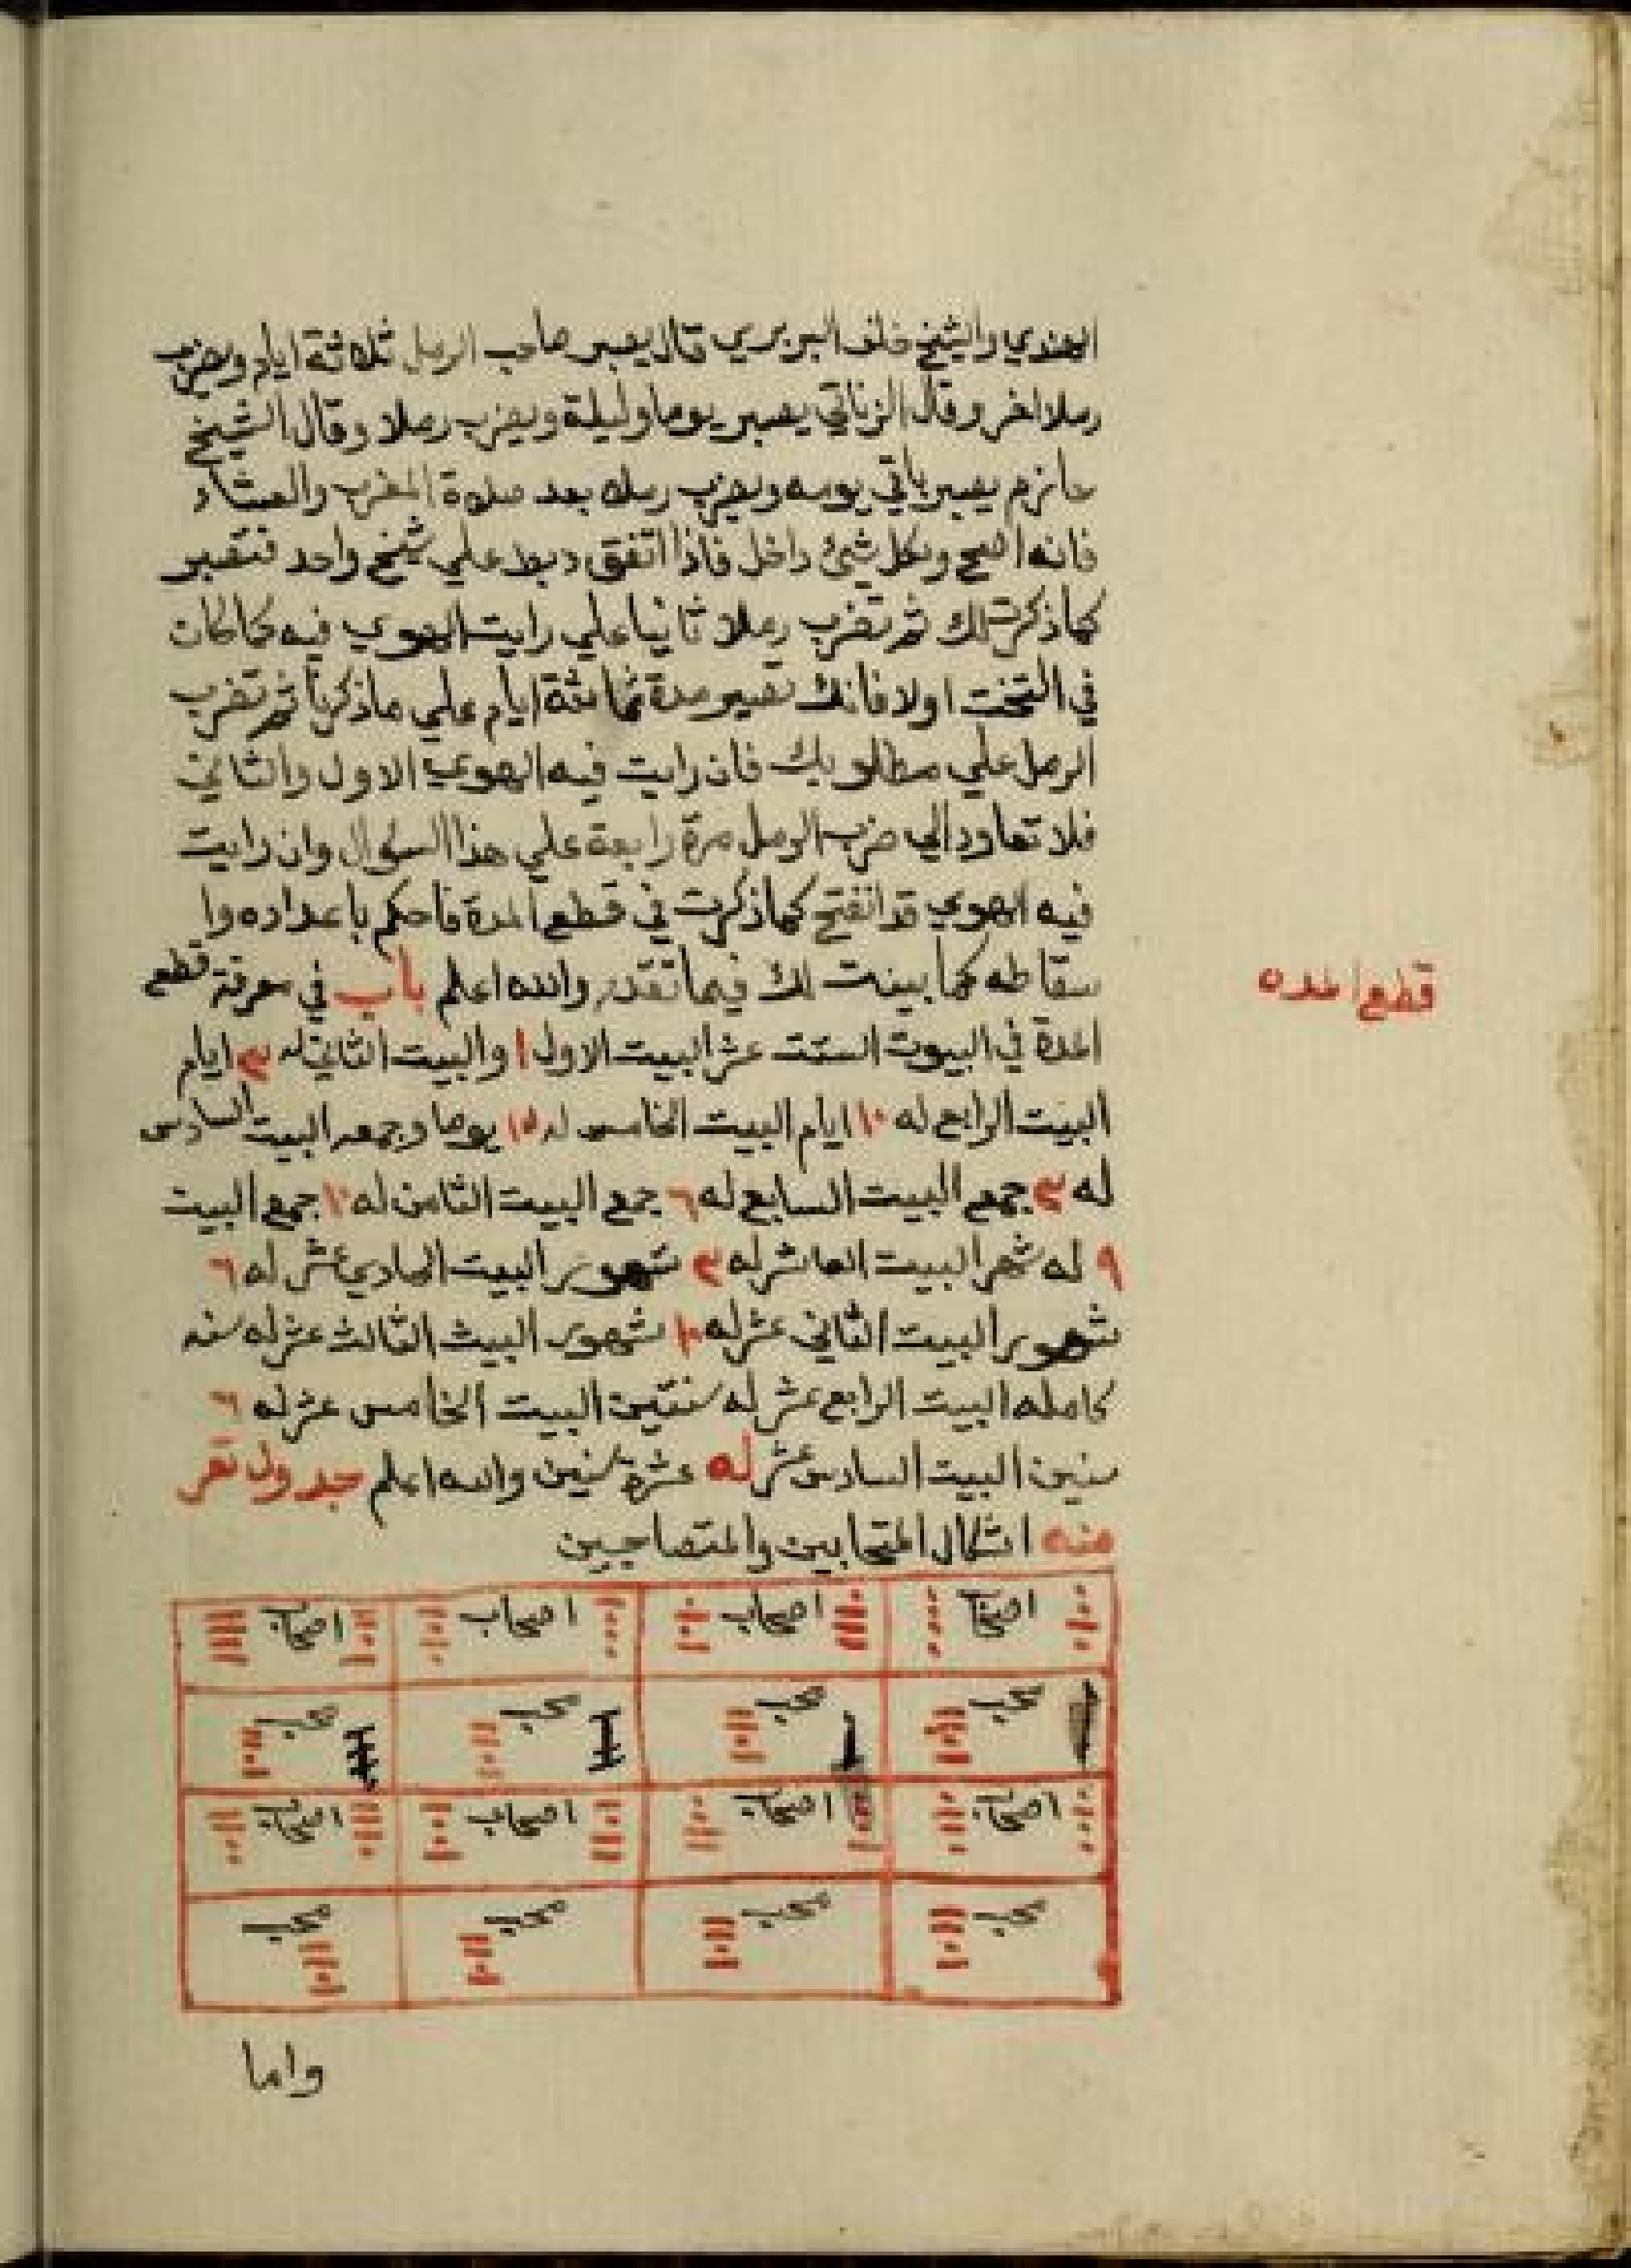 الهندي والشيخ خلف البربري قال يصبر صاحب الرمل ثلاثة ايام ويضرب
رملا اخر وقال الزناتي يصبر يوما وليلة ويضرب رملا وقال الشيخ
حازم يصبر باقي يومه ويضرب رمله بعد صلاة المغرب والعشاء
فانه اصح وكل شئ داخل فاذا اتفق علي شيخ واحد فتصبر
كما ذكرت لك ثم تضرب رملا ثانيا علي رايت الهوي فيه كما كان
في التخت اولا فانك تصير مدة ثلاثة ايام علي ما ذكرنا ثم تضرب
الرمل علي مطلوبك فان رايت فيه الهوي الاول والثاني
فلا تعاود الي ضرب الرمل مرة رابعة علي هذا السؤال وان رايت
فيه الهوي قد انفتح كما ذكرت في قطع المدة فاحكم باعداده وا
سقاطه كما بينت لك فيما تقدم والله اعلم باب في معرفة قطع
قطع المده
المدة في البيوت الستت عشر البيت الاول ١ والبيت الثاني له ٣ ايام
البيت الرابع له ١٠ ايام البيت الخامس له ١٥ يوما وجمعه البيت السادس
له ٣ جمع البيت السابع له ٦ جمع البيت الثامن له ١٠ جمع البيت
٩ له شهر البيت العاشر له ٣ شهور البيت الحادي عشر له ٦
شهور البيت الثاني عشر له ١٠ شهور البيث الثالث عشر له سنه
كامله البيت الرابع عشر له سنتين البيت الخامس عشر له ٦
سنين البيت السادس عشر له عشرة سنين والله اعلم جدول تعر
منه اشكال المتحابين والمتصاحبين
اصحاب اصحاب اصحاب اصحاب
محب محب محب محب
اصحاب اصحاب اصحاب اصحاب
محب محب محب محب
واما